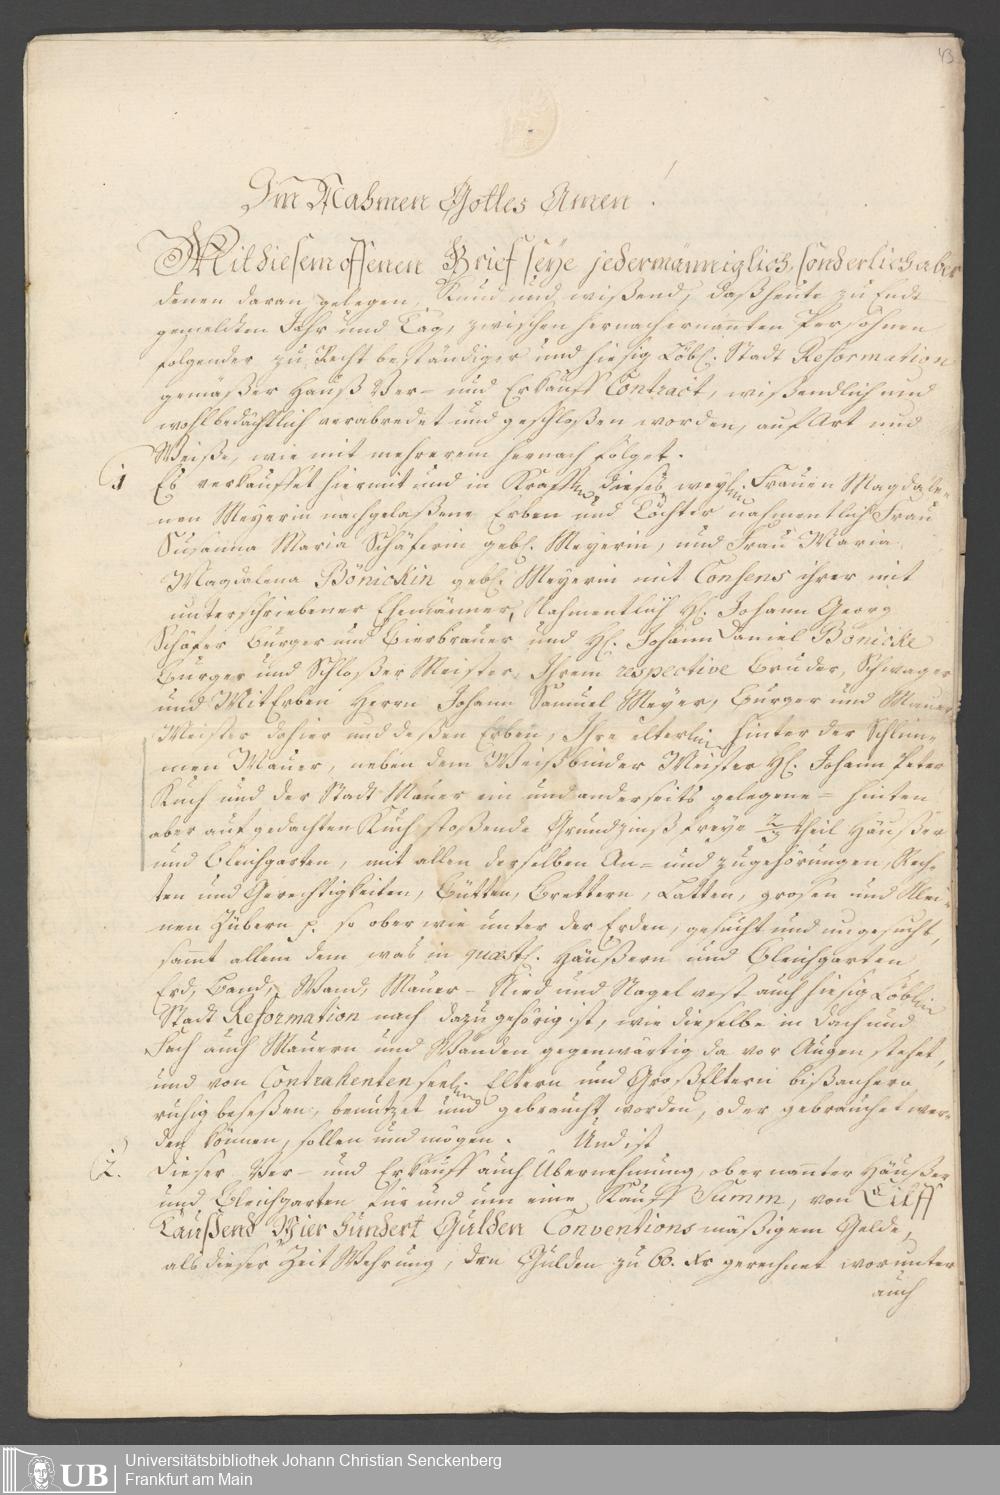 43
Im Nahmen Gottes Amen!
Mit diesem offenen Brief seye jedermänniglich, sonderlich aber
denen daran gelegen, Kund und wißend, daß heute zu Ende
gemeldten Jahr und Tag, zwischen hernach ernannten Persohnen
folgender zu Recht beständiger und hiesig Löbl. Stadt Reformation
gemäßer Hauß Ver- und Erkauff Contract, wißendlich und
wohlbedächtlich verabredet und geschloßen worden, auf Art und
Weiße, wie mit mehrerem hernach folget.
1 Es verkauffet hiermit und in Krafft dieses weyl. Frauen Magdale-
nen Meyerin nachgelaßene Erben und Töchter nahmentlich Frau
Susanna Maria Schäferin gebl. Meyerin, und Frau Maria
Magdalena Bönickin gebl. Meyerin mit Consens ihrer mit
unterschriebener Ehemänner, Nahmentlich H. Johann Georg
Schäfer Burger und Bierbrauer und H. Johann Daniel Bönicke
Burger und Schloßer Meister, Ihrem respective Bruder, Schwager
und MitErben Herrn Johann Samuel Meyer, Burger und Maurer
Meister dahier und deßen Erben, Ihre elterl. hinter der Schlim-
men Mauer, neben dem Weißbinder Meister H. Johann Peter
Kuch und der Stadt Mauer ein und anderseits gelegene= hinten
aber auf gedachten Kuch stoßende Grundzinß freye 2/3 theil Häußer
und Bleichgarten, mit allen derselben An= und zugehörungen, Rech-
ten und Gerechtigkeiten, Bütten, Brettern, Latten, grosen und Klei-
nen Zübern p. so ober wie unter der Erden, gesucht und ungesucht,
samt allem dem was in quæst. Häußern und Bleichgarten
Erd, Band, Wand, Mauer- Nied und Nagel vest auch hiesig Löbl.
Stadt Reformation nach dazu gehörig ist, wie dieselbe in Dach und
Fach auch Mauern und Wänden gegenwärtig da vor Augen stehet,
und von Contrahenten seel. Eltern und GroßEltern bißanhero
ruhig beseßen, benutzet und gebraucht worden, oder gebrauchet wer-
den können, sollen und mögen. Und ist
2. dieser Ver- und Erkauff auch Übernehmung, obernannter Häußer
und Bleichgarten für und um eine Kauff Summ, von Eilff
Taußend Vier hundert Gulden Conventions mäßigem Gelde,
als dieser Zeit Wehrung, den Gulden zu 60. Xr gerechnet worunter
auch
UB
Universitätsbibliothek Johann Christian Senckenberg
Frankfurt am Main